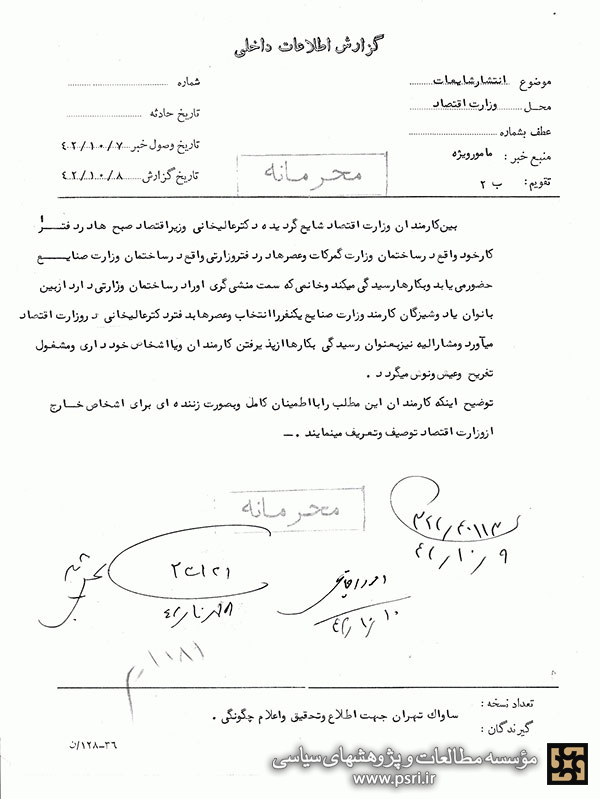 گزارش اطلاعات داخلی
موضوع انتشارشایعات
محل وزارت اقتصاد
عطف بشماره
منبع خبر : مامورویژه
تقویم : ب ۲
شماره
تاریخ حادثه
تاریخ وصول خبر ۴۲/۱۰/۷
تاریخ گزارش ۴۲/۱۰/۸
محرمانه
بین کارمندان وزارت اقتصاد شایع گردیده دکترعالیخانی وزیراقتصاد صبح هادردفتر
کارخود واقع درساختمان وزارت گمرکات وعصرهادردفتروزارتی واقع درساختمان وزارت صنایع
حضورمی یابد وبکارهارسیدگی میکند وخانمی که سمت منشی گری اورادرساختمان وزارتی دارد ازبین
بانوان یادوشیزگان کارمند وزارت صنایع یکنفرراانتخاب وعصرهابدفتردکترعالیخانی دروزارت اقتصاد
میآورد ومشارالیه نیزبعنوان رسیدگی بکارهاازپذیرفتن کارمندان ویااشخاص خودداری ومشغول
تفریح وعیش ونوش میگردد .
توضیح اینکه کارمندان این مطلب رابااطمینان کامل وبصورت زننده ای برای اشخاص خارج
ازوزارت اقتصاد توصیف وتعریف مینمایند . ــ
محرمانه
۴۲/۱۰/۹
۴۲/۱۰/۱۰
۱۱۸۱
تعداد نسخه :
گیرندگان :
ساواک تهران جهت اطلاع وتحقیق واعلام چگونگی .
۳۶-۱۲۸/ن
مؤسسه مطالعات و پژوهشهای سیاسی
www.psri.ir